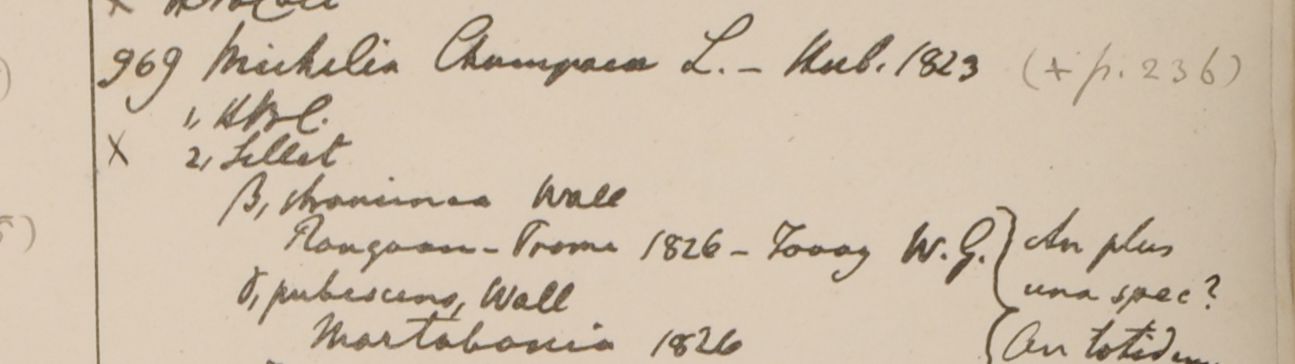 969 Michelia Champaca L. – Herb. 1823 (+ p. 236)
1, HBC.
X 2, Sillet
β, Wall
Rangoon – Prome 1826 – Tavoy W.G. } An plus
una spec?
δ, pubescens, Wall
Martabania 1826 { An totidem